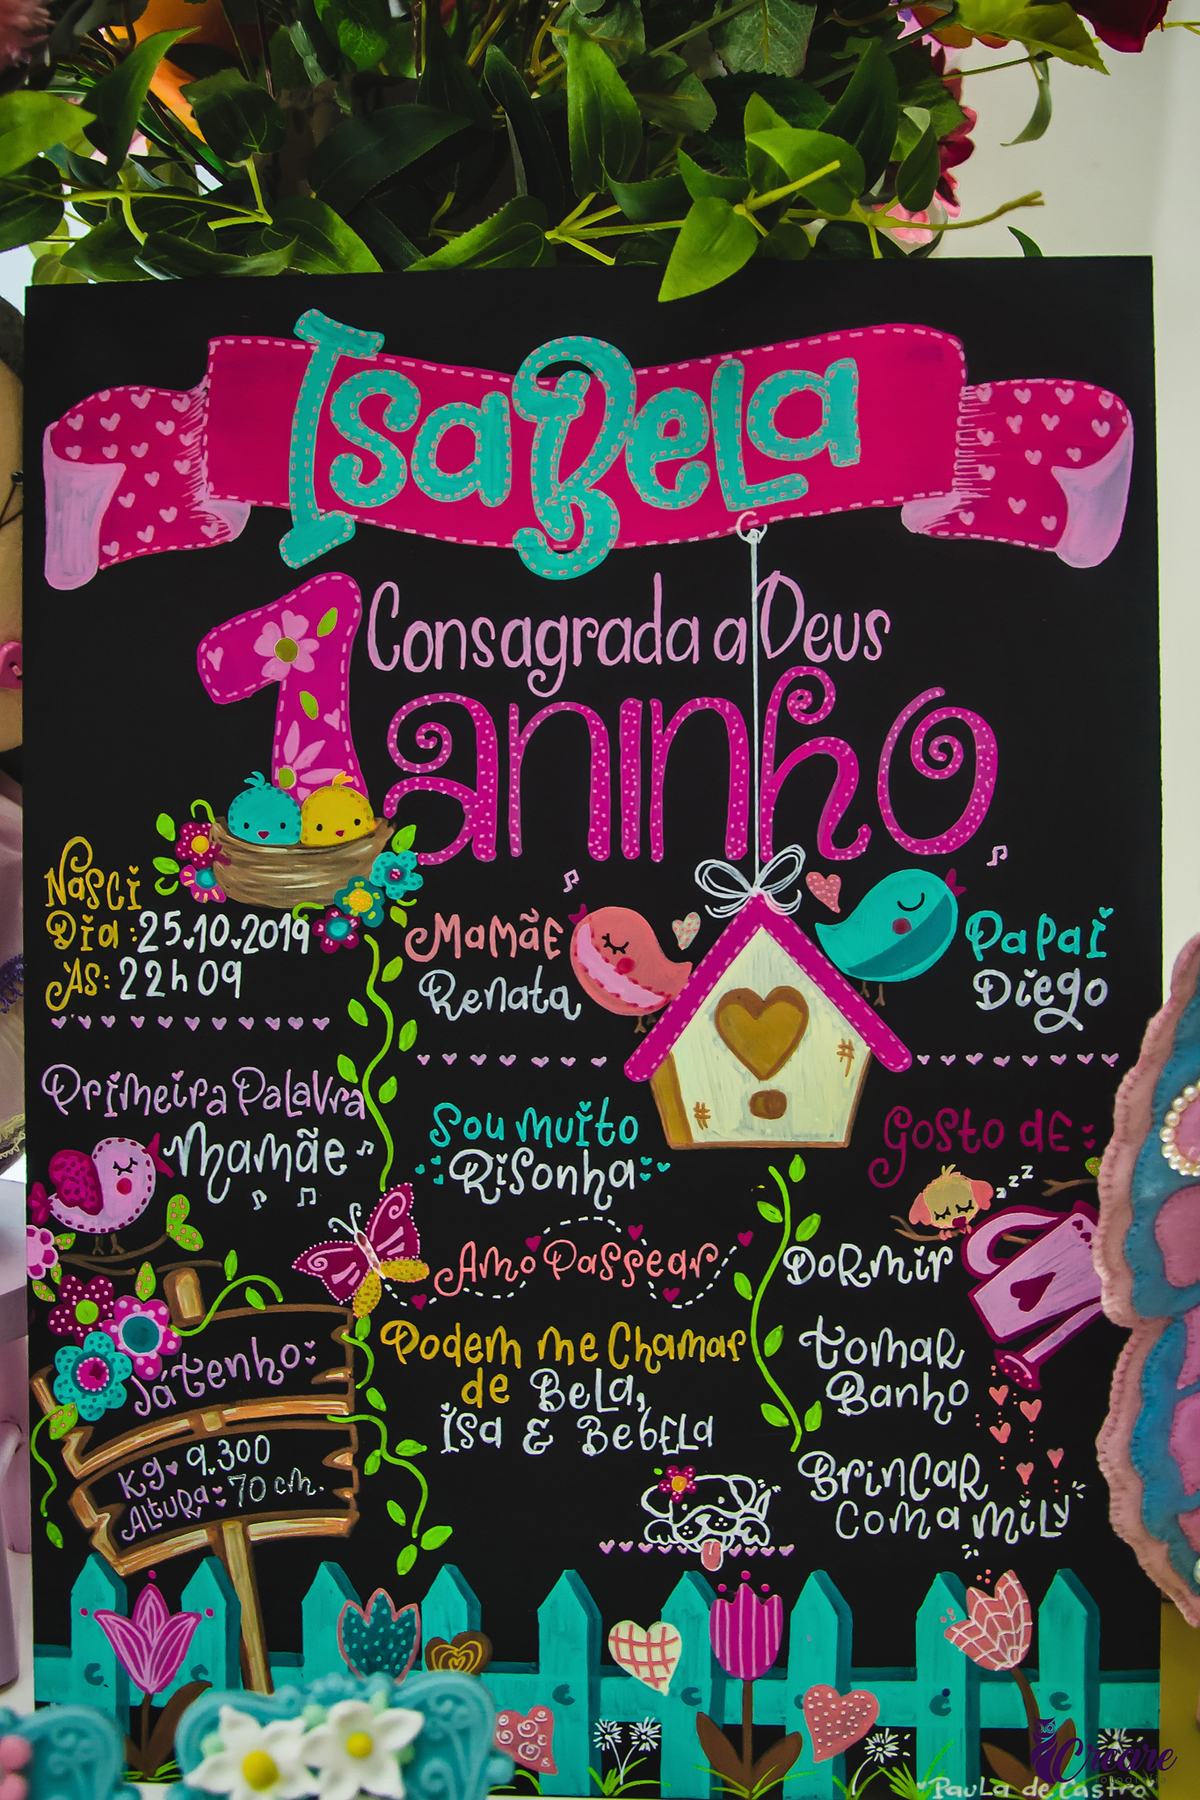 Isabela
Consagrada a Deus
1 aninho
Nasci
Dia: 25.10.2019
Às: 22h09
Mamãe
Renata
Papai
Diego
Primeira Palavra
Mamãe
Sou muito
Risonha
Gosto de:
zzz
Amo Passear
Dormir
Podem me Chamar
de Bela,
Isa & Bebela
Tomar
Banho
Brincar
com a mily
Já tenho:
Kg: 9.300
Altura: 70 cm.
Creare
"Paula de Castro"